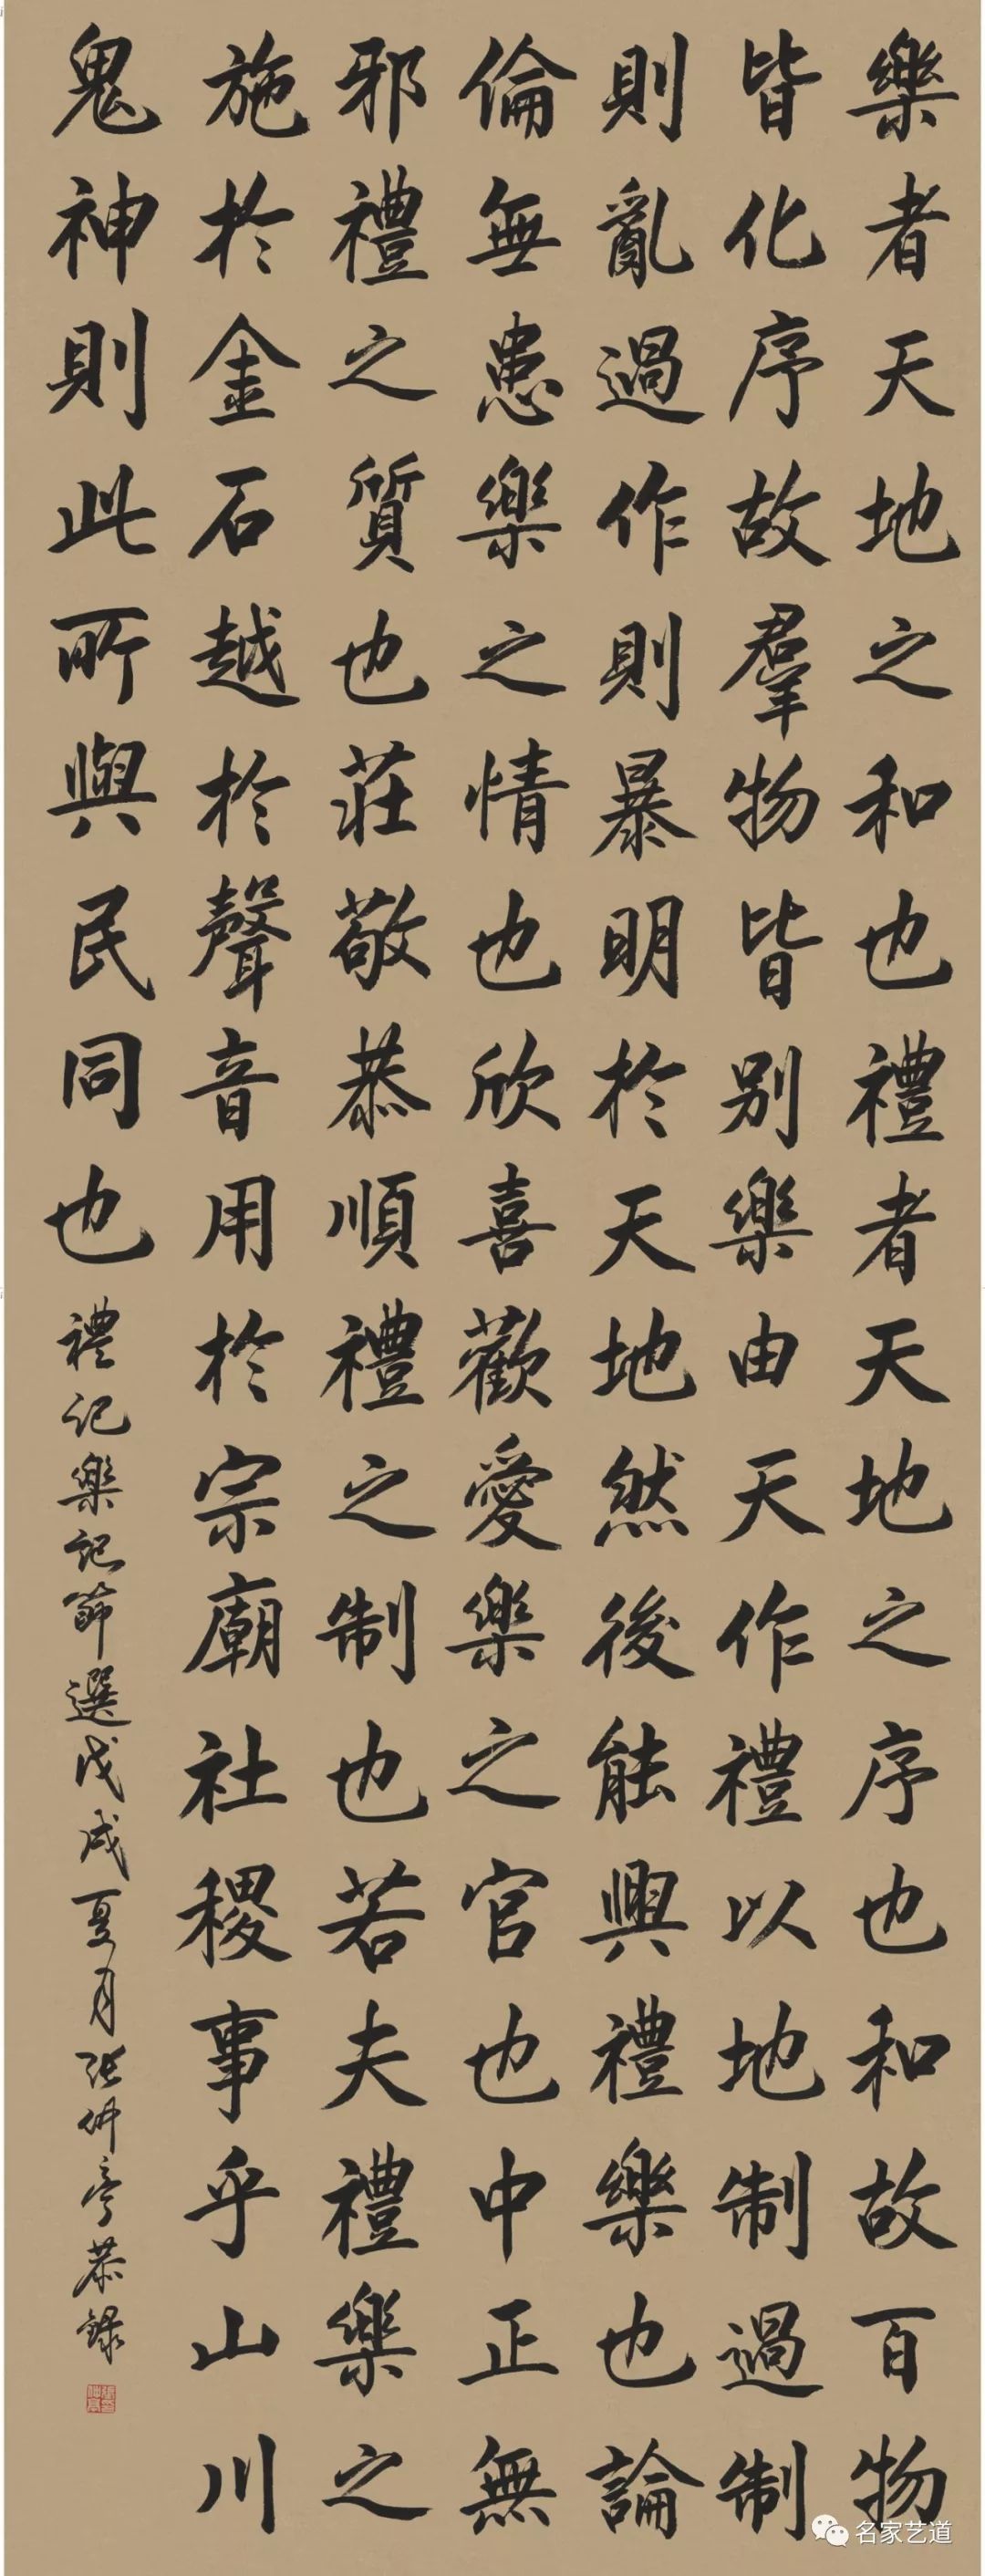 樂者天地之和也禮者天地之序也和故百物
皆化序故羣物皆別樂由天作禮以地制過制
則亂過作則暴明於天地然後能興禮樂也論
倫無患樂之情也欣喜歡愛樂之官也中正無
邪禮之質也莊敬恭順禮之制也若夫禮樂之
施於金石越於聲音用於宗廟社稷事乎山川
鬼神則此所與民同也
禮記樂記節選戊戌夏月張仲亭恭錄
名家艺道